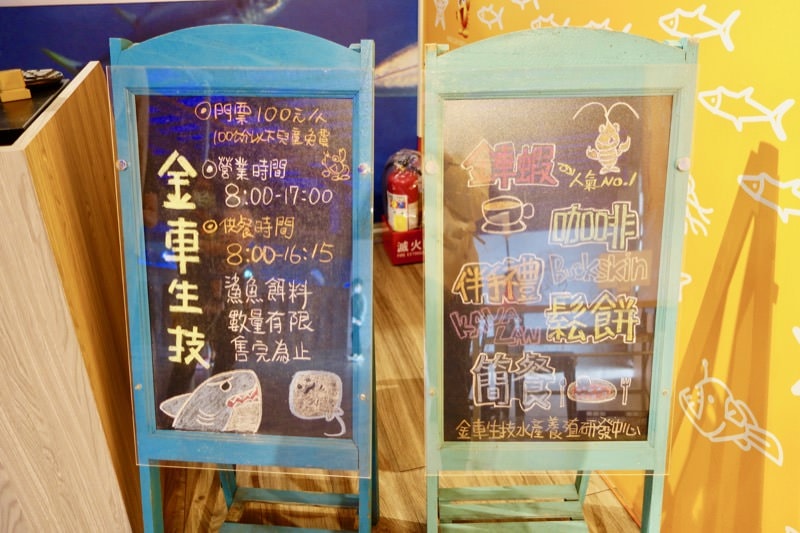 金車生技
門票100元/人
100公分以下兒童免費
營業時間
8:00-17:00
供餐時間
8:00-16:15
鯊魚餌料
數量有限
售完為止
金車蝦
人氣NO.1
咖啡
伴手禮
Buckskin
KAVALAN
鬆餅
簡餐
金車生技水產養殖研發中心
滅火